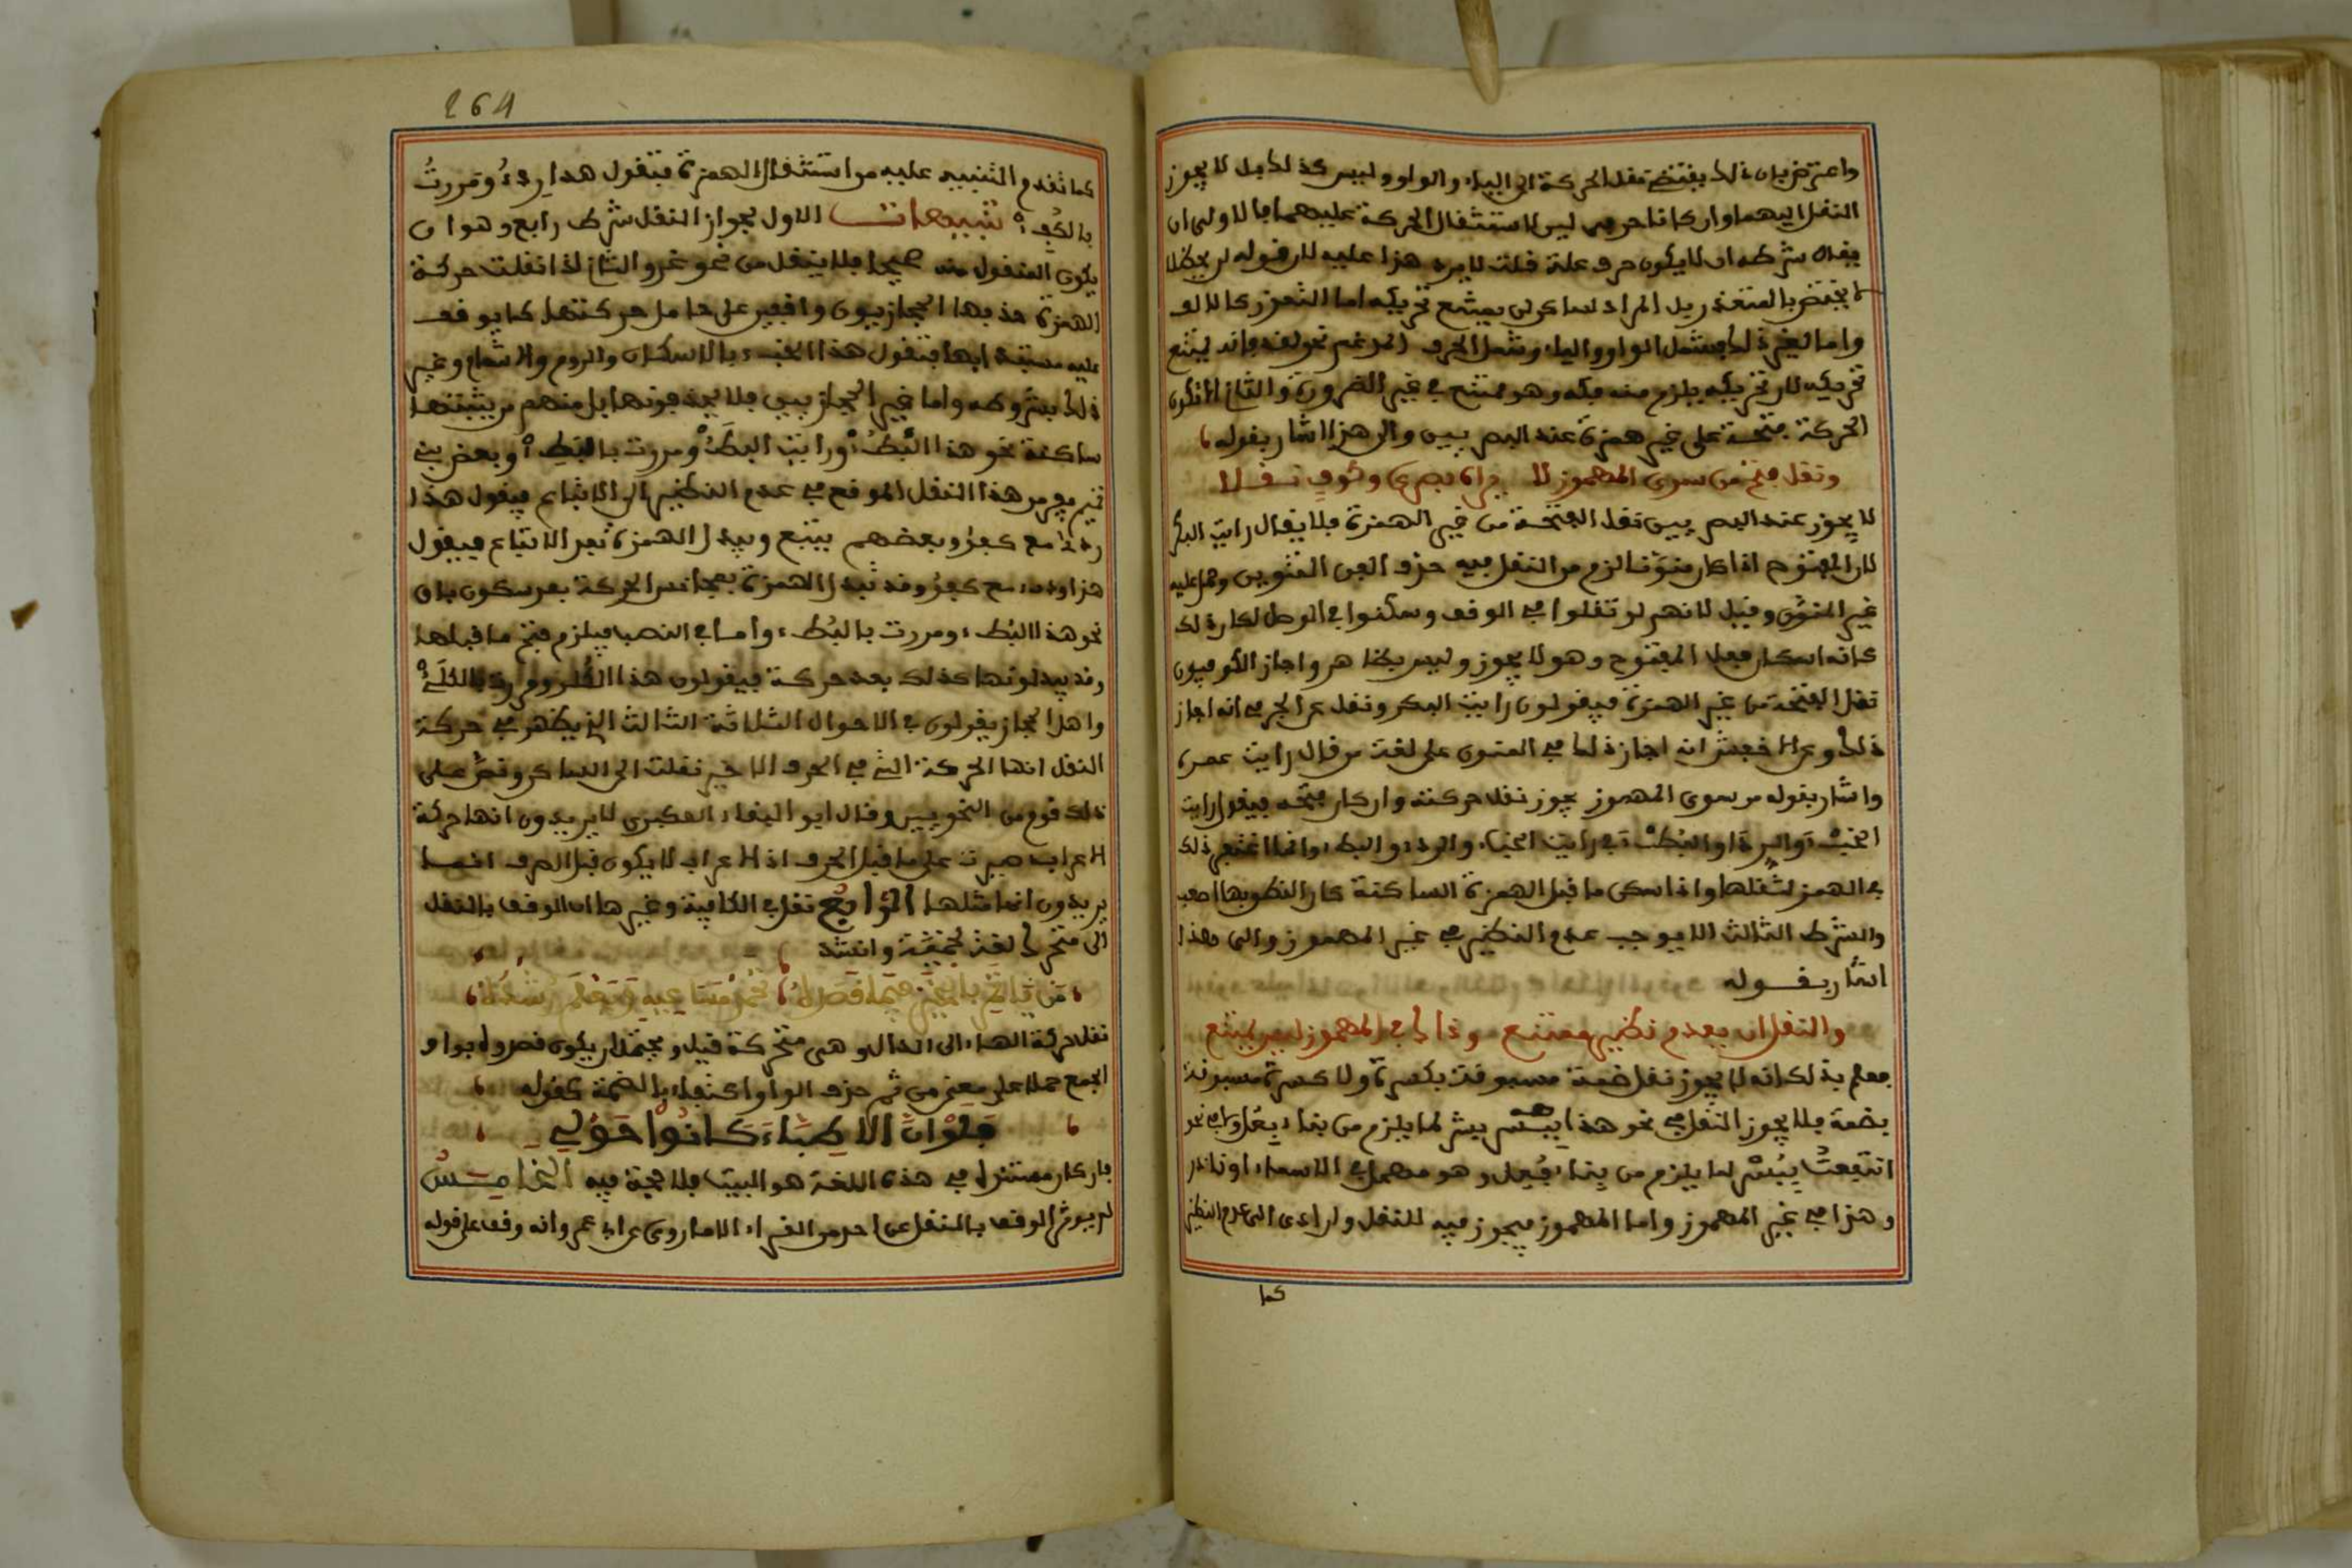 واعترض بان ذلك يقتضي نقل الحركة الى الياء والواو وليس كذلك بل لا يجوز
النقل اليهما وان كانا حرفي لين لاستثقال الحركة عليهما فالاولى ان
يقال شرطه ان لا يكون حرف علة قلت لا يرد هذا عليه لان قوله لن يحظلا
لا يختص بالمتعذر بل المراد لساكن لن يمتنع تحريكه اما لتعذر كالالف
واما لغير ذلك فيشمل الواو والياء ويشمل الحرف المدغم نحو فانه يمتنع
تحريكه لان تحريكه يلزم منه فكه وهو ممتنع في غير الضرورة والثاني ان لا تكون
الحركة فتحة على غير همزة عند البصريين والى هذا اشار بقوله
ونقل فتح من سوى المهموز لا يراه بصري وكوف نقلا
لا يجوز عند البصريين نقل الفتحة من غير الهمزة فلا يقال رايت البكر
لان المفتوح اذا كان منونا لزم من النقل فيه حذف الف التنوين وحمل عليه
غير المنون وقيل لانهم لو نقلوا في الوقف وسكنوا في الوصل لكان ذلك
كانه اسكان فعل المفتوح وهو لا يجوز وليس بظاهر واجاز الكوفيون
نقل الفتحة من غير الهمزة فيقولون رايت البكر ونقل عن الجرمي انه اجاز
ذلك وعن الاخفش انه اجاز ذلك في المنون على لغة من قال رايت عمر
واشار بقوله من سوى المهموز يجوز نقل حركته وان كان فتحه فيقول رايت
الخبأ والردأ والبطأ في رايت الخبء والردء والبطء وانما اغتفر ذلك
في الهمز لثقلها واذا سكن ما قبل الهمزة الساكنة كان النطق بها اصعب
والشرط الثالث الا يوجب عدم النظير في غير المهموز والى هذا
اشار بقوله
والنقل ان يعدم نظير ممتنع وذاك في المهموز ليس يمتنع
فعلم بذلك انه لا يجوز نقل ضمة مسبوقة بكسرة ولا كسرة مسبوقة
بضمة فلا يجوز النقل في نحو هذا بشر لما يلزم من بناء فعل ولا في نحو
انتفعت ببسر لما يلزم من بناء فعل وهو مهمل في الاسماء او نادر
وهذا في غير المهموز واما المهموز فيجوز فيه النقل وان ادى الى عدم النظير
كما
264
كما تقدم التنبيه عليه من استثقال الهمزة فتقول هذا ردء ومررت
بالكفء تنبيهات الاول لجواز النقل شرط رابع وهو ان
يكون المنقول منه صحيحا فلا ينقل من نحو غزو الثاني اذا نقلت حركة
الهمزة حذفها الحجازيون واقفين على حامل حركتها كما يوقف
عليه مستبدا بها فتقول هذا الخب بالاسكان والروم والاشمام وغير
ذلك بشروطه واما غير الحجازيين فلا يحذفونها بل منهم من يثبتها
ساكنة نحو هذا البطؤ ورايت البطأ ومررت بالبطئ وبعض بني
تميم يفر من هذا النقل الموقع في عدم النظير الى الاتباع فيقول هذا
ردئ مع كفؤ وبعضهم يتبع ويبدل الهمزة بعد الاتباع فيقول
هذا ردي مع كفو وقد تبدل الهمزة بمجانس الحركة بعد سكون باق
نحو هذا البطء ومررت بالبطء واما في النصب فيلزم فتح ما قبلها
وقد يبدلونها كذلك بعد حركة فيقولون هذا الكلو ومررت بالكلي
واهل الحجاز يقولون في الاحوال الثلاثة الثالث الذي يظهر في حركة
النقل انها الحركة التي في الحرف الاخير نقلت الى الساكن ونص على
ذلك قوم من النحويين وقال ابو البقاء العكبري لا يريدون انها حركة
الاعراب صيرت على ما قبل الحرف اذ الاعراب لا يكون قبل الحرف انما
يريدون انها مثلها الرابع نقل في الكافية وغيرها ان الوقف بالنقل
الى متحرك لغة لخمية وانشد
من ياتمر بالخير فيما قصده تحمد مساعيه ويعلم رشده
نقل حركة الهاء الى الدال وهي متحركة قيل ويحتمل ان يكون قصدوا بواو
الجمع حملا على معنى من ثم حذف الواو اكتفاء بالضمة كقوله
فلو ان الاطباء كانوا حولي
فان كان مستند في هذه اللغة هو البيت فلا حجة فيه الخامس
لم يوثر الوقف بالنقل عن احد من القراء الا ما روي عن ابي عمرو انه وقف على قوله